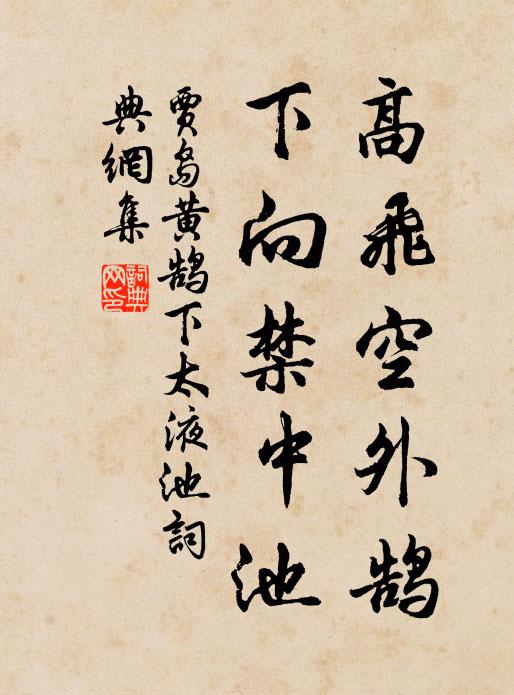 高飛空外鹄
下向禁中池
賈島黄鹄下太液池詞
典網集
詞典
网印